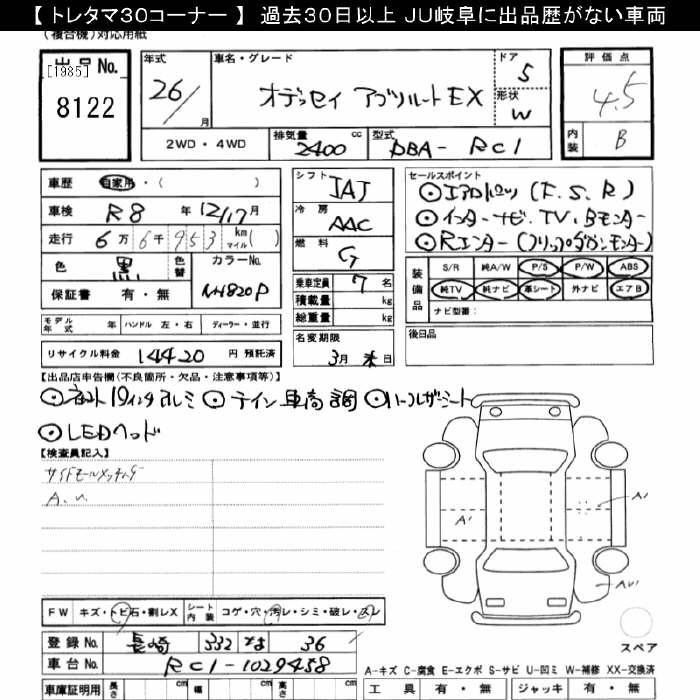 【 トレタマ30コーナー 】 過去30日以上 JU岐阜に出品歴がない車両
(複合機)対応用紙
出品No.
[1985]
8122
年式
26/
月
車名・グレード
オデッセイ アブソルートEX
ドア
5
形状
W
評価点
4.5
内装
B
2WD・4WD
排気量
2400
cc
型式
DBA- RC1
車歴
自家用・( )
車検
R8 年 12/17 月
走行
6万 6千 953
km
マイル
( )
色
黒
色替
カラーNo.
NH820P
保証書
有・無
モデル年式
年
ハンドル 左・右
ディーラー・並行
リサイクル料金
14420
円 預託済
シフト
IAT
冷房
AAC
燃料
G
乗車定員
7
名
積載量
kg
総重量
kg
名変期限
3月 末 日
セールスポイント
⊙エアロパーツ (F.S.R)
⊙インターナビ.TV.Bモニター
⊙Rエンター(フリップダウンモニター)
装備品
S/R 純A/W P/S P/W ABS
純TV 純ナビ 革シート 外ナビ エアB
ナビ型番:
後日品
【出品店申告欄(不良箇所・欠品・注意事項等)】
19インチアルミ ⊙テイン 車高調 ⊙ハーフレザーシート
⊙LEDヘッド
【検査員記入】
A'
A'
スペア
FW
キズ・トビ石・割レX
シート内装
コゲ・穴・汚レ・シミ・破レ・スレ
登録No.
長崎 332 36
車台No.
RC1-1029458
A-キズ C-腐食 E-エクボ S-サビ U-凹ミ W-補修 XX-交換済
車庫証明用
長さ
cm
幅
cm
高さ
cm
工具
有・無
ジャッキ
有・無